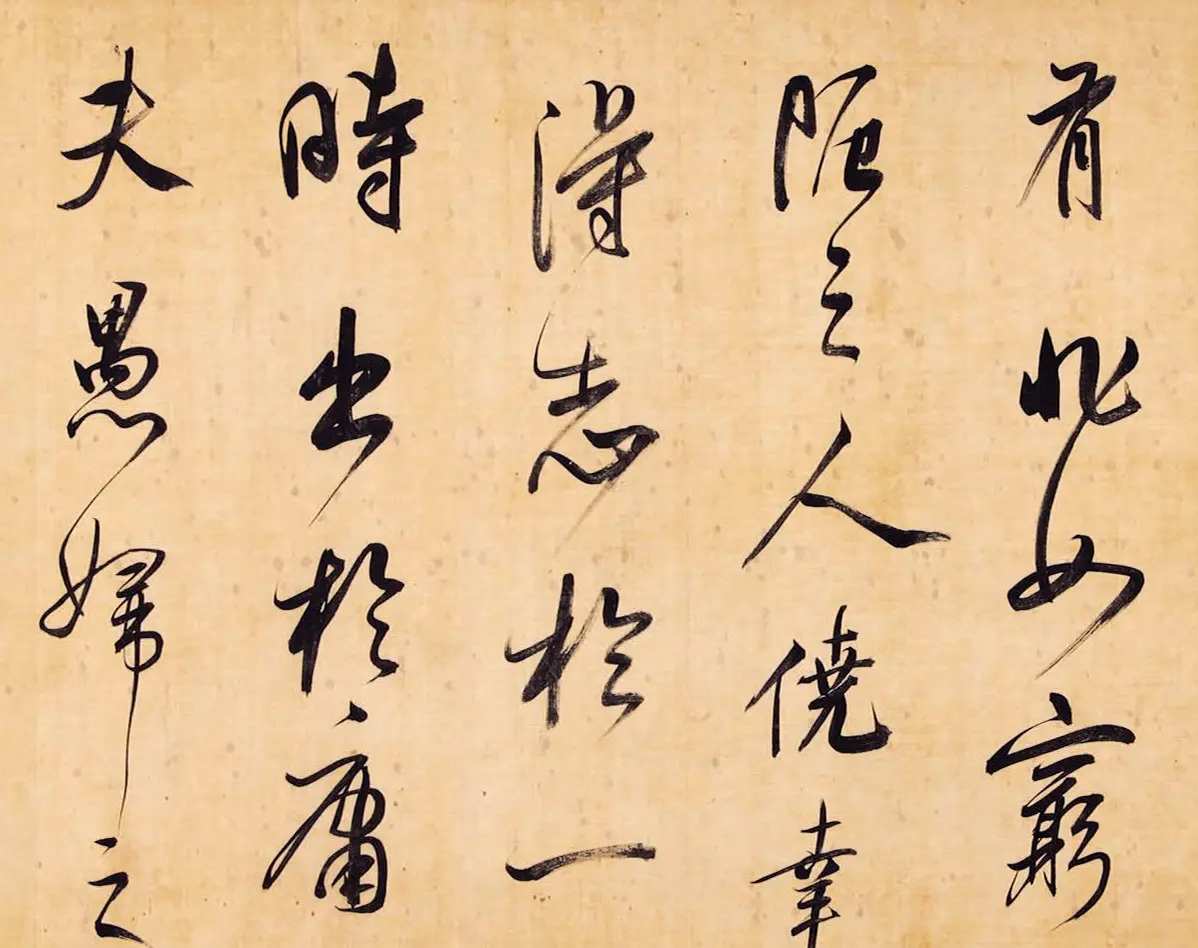 有非如窮
阨之人僥幸
得志於一
時出於庸
夫愚婦之